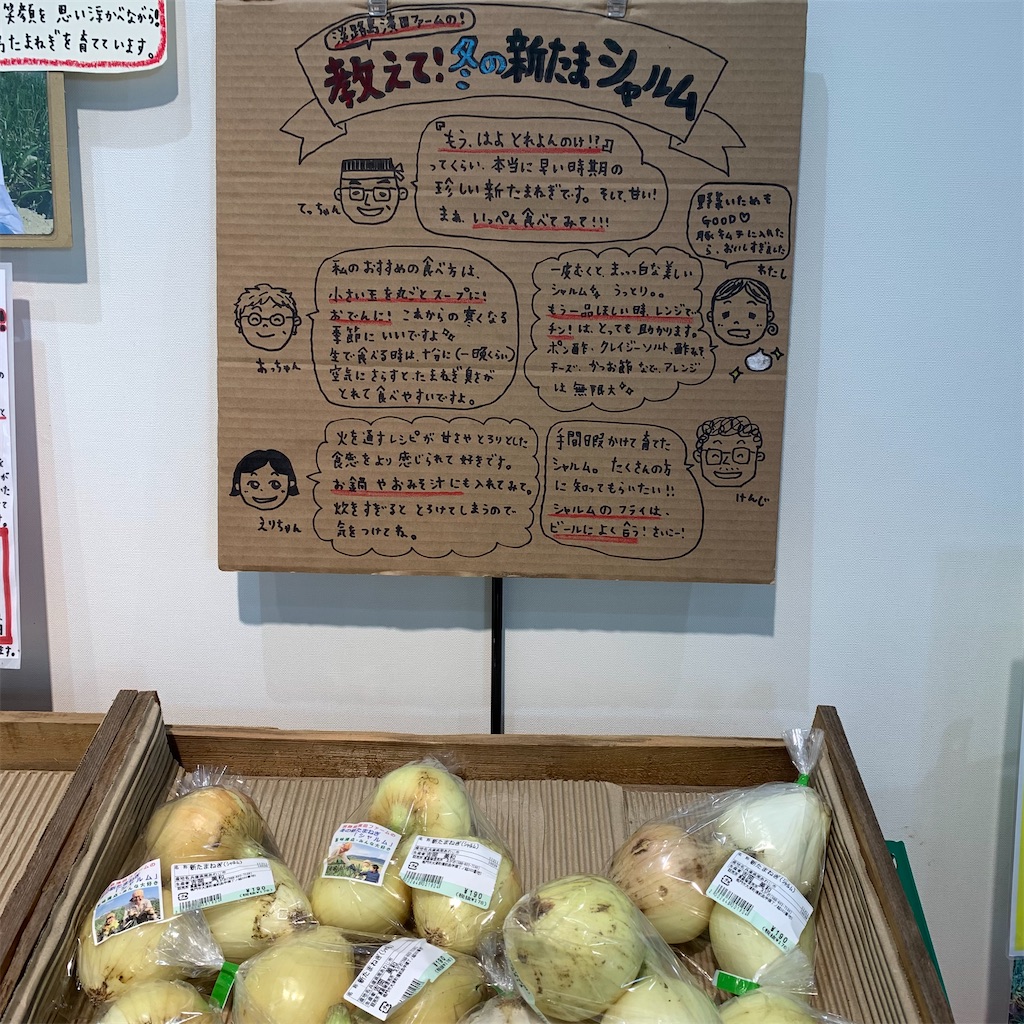 笑顔を思い浮かべながら!
たまねぎを育てています。
淡路島濱田ファームの!
教えて!冬の新たまシャルム
『もう、はよ とれよんのけ!?』
ってくらい、本当に早い時期の
珍しい新たまねぎです。そして、甘い!
まぁ、いっぺん食べてみて!!!
てっちゃん
野菜いためも
GOOD♡
豚キムチに入れた
ら、おいしすぎました
わたし
私のおすすめの食べ方は、
小さい玉を丸ごとスープに!
おでんに! これからの寒くなる
季節にいいですよ
生で食べる時は、十分に(一晩くらい)
空気にさらすと、たまねぎ臭さが
とれて食べやすいですよ。
あっちゃん
一皮むくと、まっっ白な美しい
シャルムを うっとり。。
もう一品ほしい時、レンジで
チン!は、とっても助かります。
ポン酢、クレイジーソルト、酢みそ
チーズ、かつお節 などで、アレンジ
は無限大
火を通すレシピが 甘さやとろりとした
食感をより感じられて好きです。
お鍋やおみそ汁にも入れてみて。
炊きすぎると とろけてしまうので
気をつけてね。
えりちゃん
手間暇かけて育てた
シャルム。たくさんの方
に知ってもらいたい!!
シャルムのフライは、
ビールによく合う! さいこー!
けんじ
冬の新たまねぎ
「シャルム」
名称 新たまねぎ(シャルム)
¥190
名称 新たまねぎ(シャルム)
¥190
名称 新たまねぎ(シャルム)
¥190
名称 新たまねぎ(シャルム)
¥190